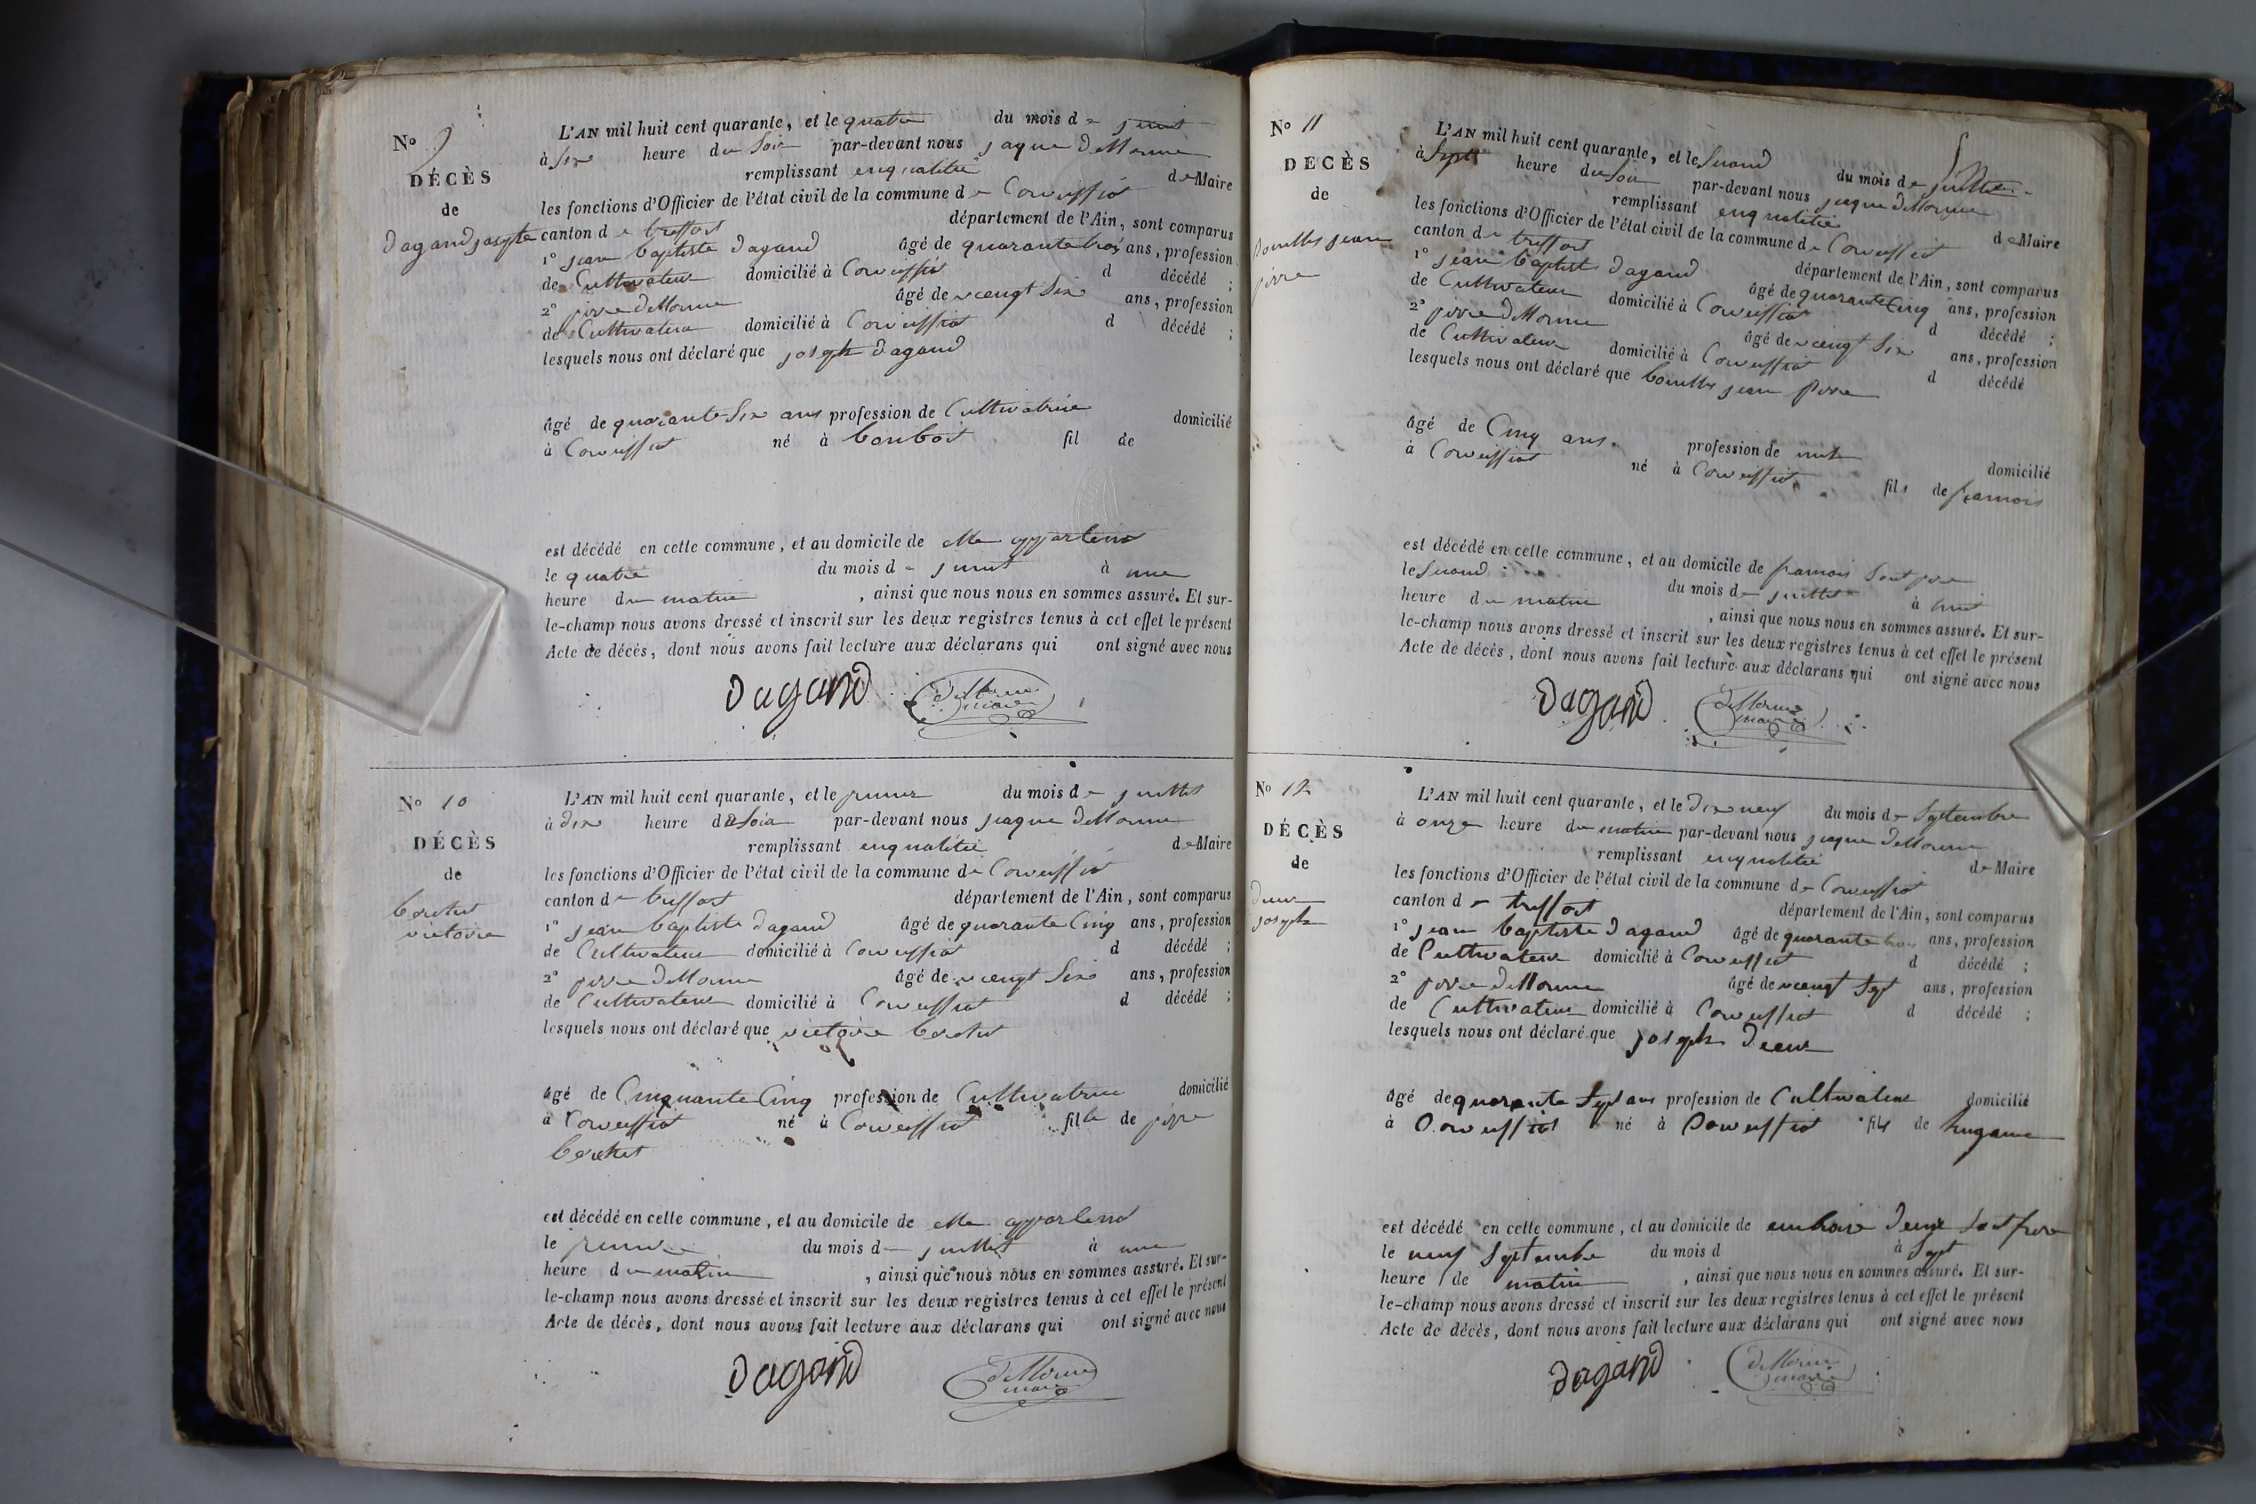 No 9
DÉCÈS
de
Dagand josepte
L'AN mil huit cent quarante, et le quatre du mois de
à six heure du soir par-devant nous jaque deMornie
remplissant enqualitée de Maire
les fonctions d'Officier de l'état civil de la commune de Coreissiat
canton de treffort département de l'Ain, sont comparus
1° jean baptiste dagand âgé de quarante trois ans, profession
de Cultivateur domicilié à Coreissiat d décédé ;
2° pierre deMornie âgé de veengt Six ans, profession
de Cultivateur domicilié à Coreissiat d décédé ;
lesquels nous ont déclaré que joseph dagand
âgé de quarante Six ans profession de Cultivatrice domicilié
à Coreissiat né à fil de
est décédé en cette commune, et au domicile de elle appartend
le quatre du mois de à une
heure du matin , ainsi que nous nous en sommes assuré. Et sur-
le-champ nous avons dressé et inscrit sur les deux registres tenus à cet effet le présent
Acte de décès, dont nous avons fait lecture aux déclarans qui ont signé avec nous
Dagand deMornie maire
No 10
DÉCÈS
de
victoire
L'AN mil huit cent quarante, et le du mois de juillet
à dix heure du Soir par-devant nous jaque deMornie
remplissant enqualitée de Maire
les fonctions d'Officier de l'état civil de la commune de Coreissiat
canton de treffort département de l'Ain, sont comparus
1° jean baptiste dagand âgé de quarante Cinq ans, profession
de Cultivateur domicilié à Coreissiat d décédé ;
2° pierre deMornie âgé de veengt Six ans, profession
de Cultivateur domicilié à Coreissiat d décédé ;
lesquels nous ont déclaré que victoire
âgé de Cinquante Cinq profession de Cultivatrice domicilié
à Coreissiat né à Coreissiat fille de
est décédé en cette commune, et au domicile de elle appartend
le du mois de juillet à une
heure du matin , ainsi que nous nous en sommes assuré. Et sur-
le-champ nous avons dressé et inscrit sur les deux registres tenus à cet effet le présent
Acte de décès, dont nous avons fait lecture aux déclarans qui ont signé avec nous
Dagand deMornie maire
No 11
DÉCÈS
de
jean
L'AN mil huit cent quarante, et le Seuond du mois de juillet
à Sept heure du Soir par-devant nous jaque deMornie
remplissant enqualitée de Maire
les fonctions d'Officier de l'état civil de la commune de Coreissiat
canton de treffort département de l'Ain, sont comparus
1° jean baptiste dagand âgé de quarante Cinq ans, profession
de Cultivateur domicilié à Coreissiat d décédé ;
2° pierre deMornie âgé de veengt Six ans, profession
de Cultivateur domicilié à Coreissiat d décédé
lesquels nous ont déclaré que jean
âgé de Cinq ans. profession de domicilié
à Coreissiat né à Coreissiat fils de
est décédé en cette commune, et au domicile de
le Seuond du mois de juillet à
heure du matin , ainsi que nous nous en sommes assuré. Et sur-
le-champ nous avons dressé et inscrit sur les deux registres tenus à cet effet le présent
Acte de décès, dont nous avons fait lecture aux déclarans qui ont signé avec nous
Dagand deMornie maire
No 12
DÉCÈS
de
joseph
L'AN mil huit cent quarante, et le dix neuf du mois de Septembre
à onze heure du matin par-devant nous jaque deMornie
remplissant enqualitée de Maire
les fonctions d'Officier de l'état civil de la commune de Coreissiat
canton de treffort département de l'Ain, sont comparus
1° jean baptiste dagand âgé de quarante trois ans, profession
de Cultivateur domicilié à Coreissiat d décédé ;
2° pierre deMornie âgé de veengt Sept ans, profession
de Cultivateur domicilié à Coreissiat d décédé ;
lesquels nous ont déclaré que joseph
âgé de quarante Sept ans profession de Cultivateur domicilié
à Coreissiat né à Coreissiat fils de
est décédé en cette commune, et au domicile de
le neuf Septembre du mois d à Sept
heure de matin , ainsi que nous nous en sommes assuré. Et sur-
le-champ nous avons dressé et inscrit sur les deux registres tenus à cet effet le présent
Acte de décès, dont nous avons fait lecture aux déclarans qui ont signé avec nous
Dagand deMornie maire